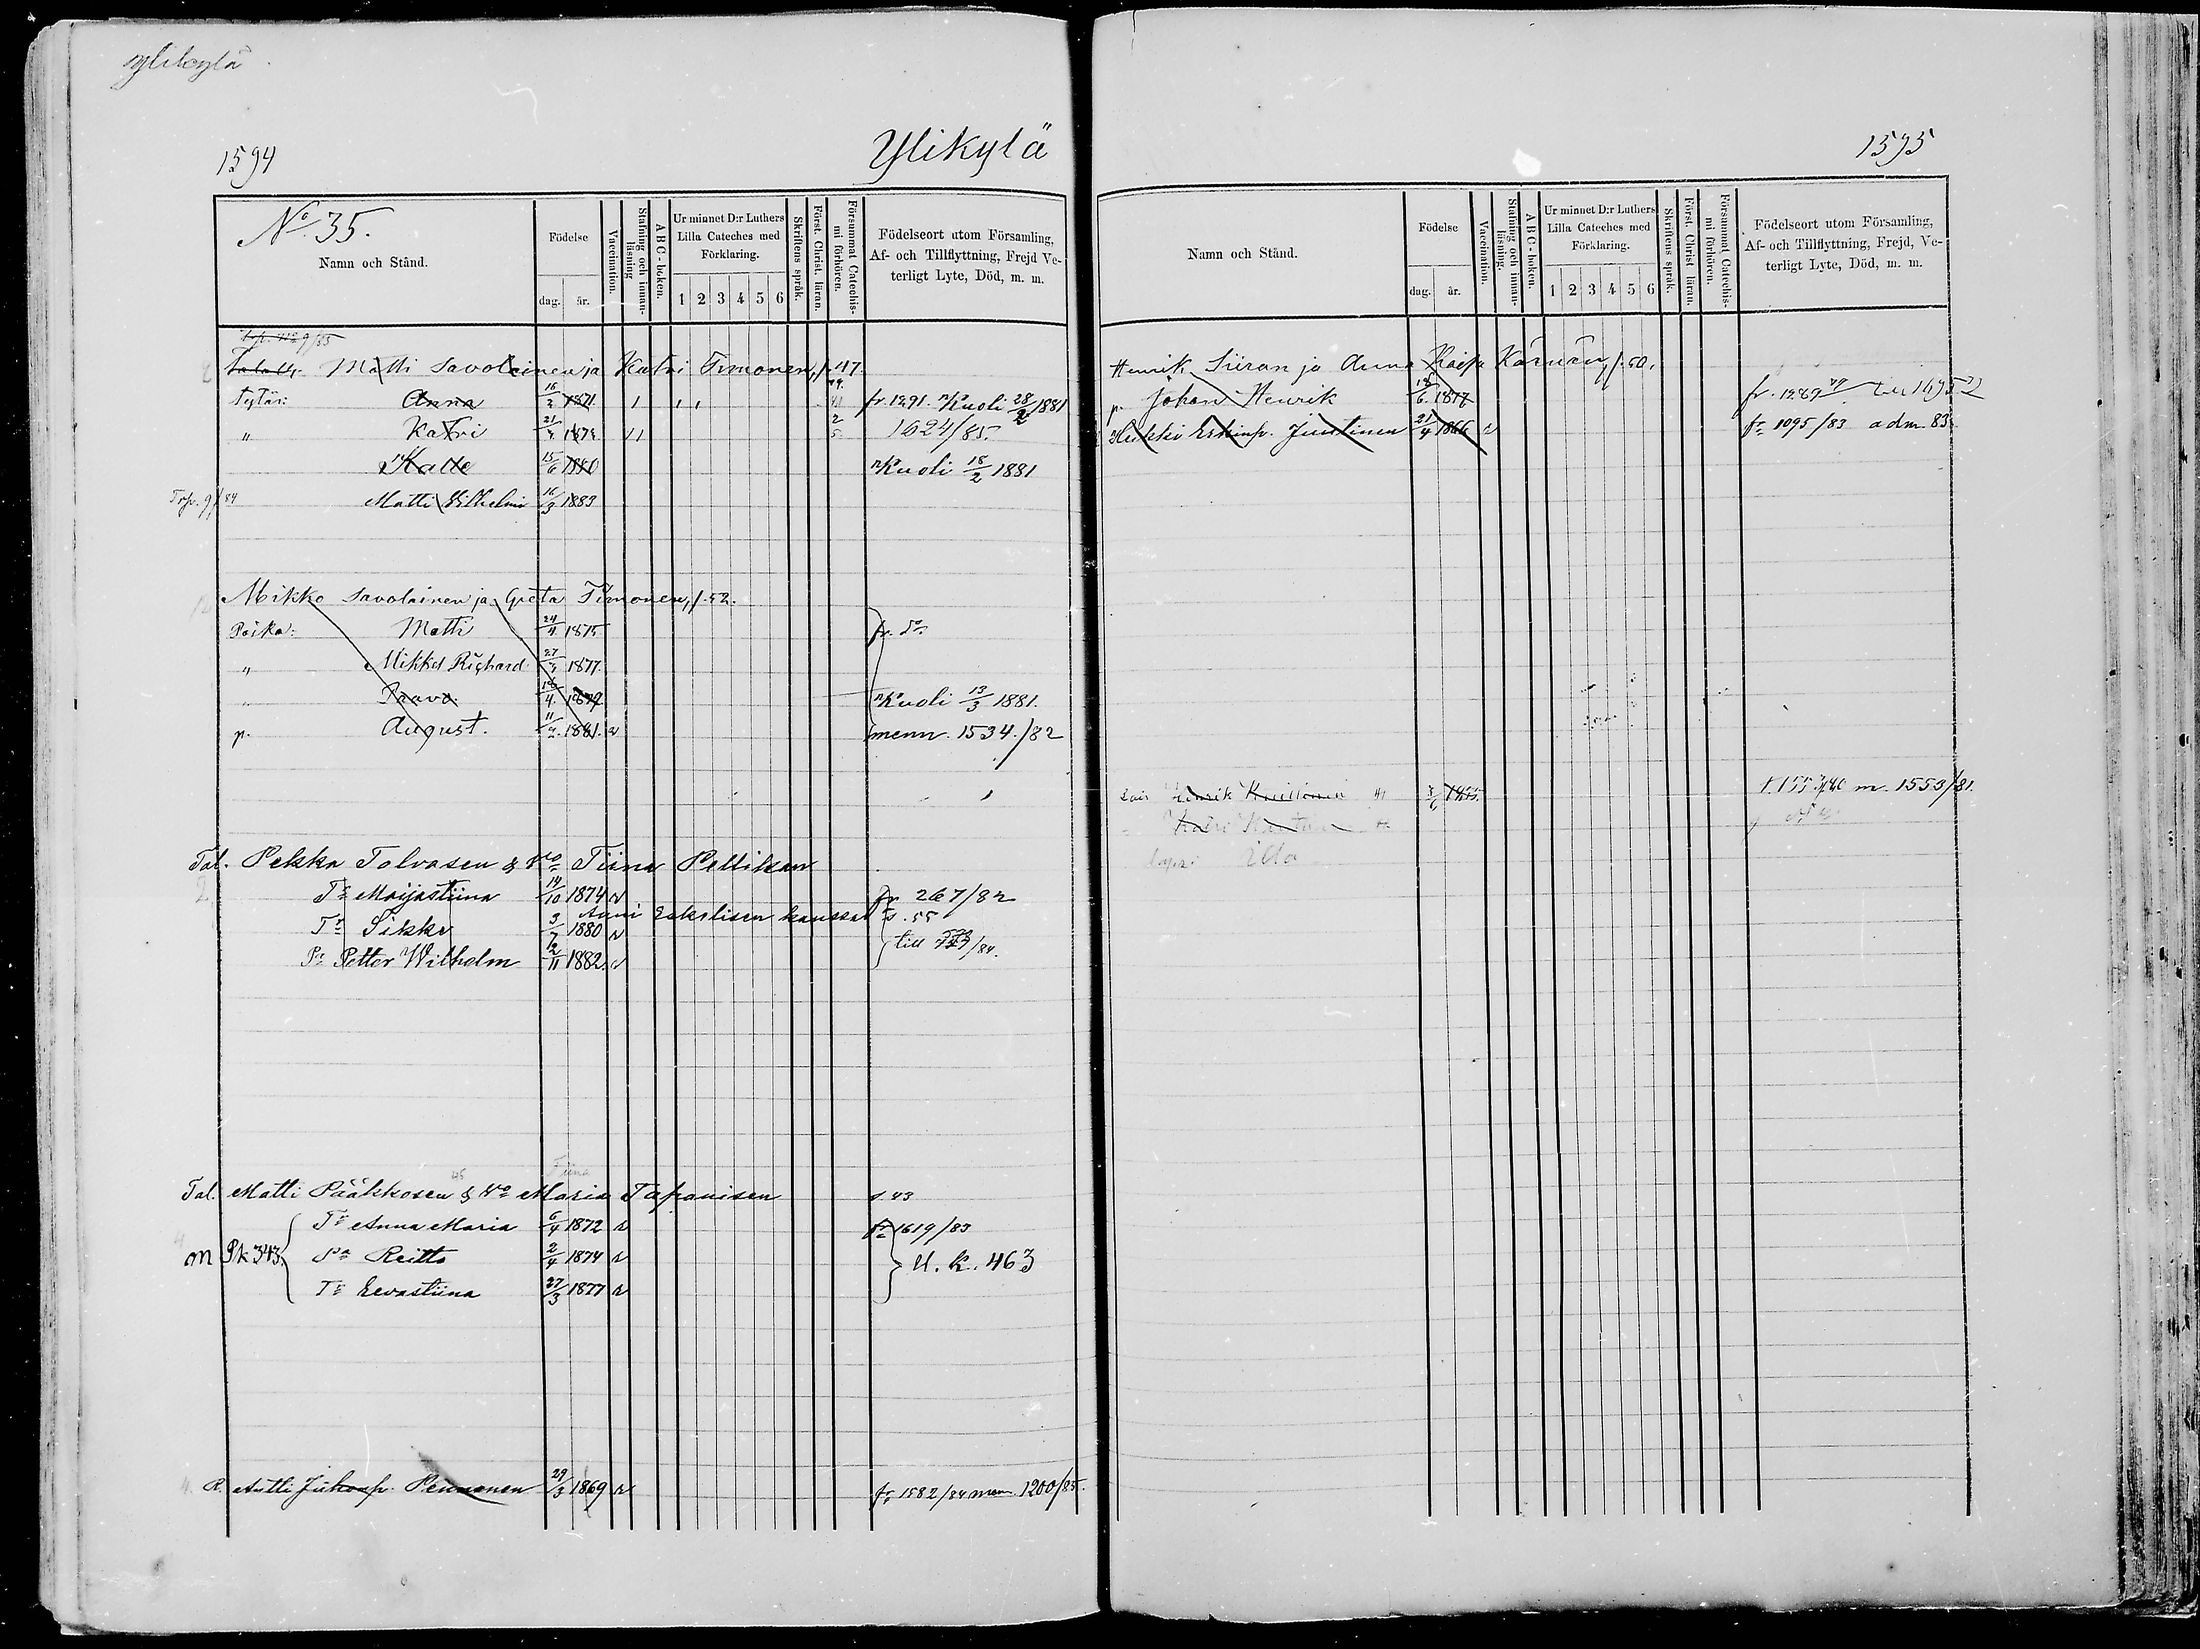 Ylikylä
1594
Ylikylä
No. 35.
Namn och Stånd.
Födelse
dag. år.
Vaccination.
Stafning och innan-läsning
ABC-boken.
Ur minnet D:r Luthers Lilla Cateches med Förklaring.
1 2 3 4 5 6
Skriftens språk.
Först. Christ. läran.
Försummat Catechis-mi förhören.
Födelseort utom Församling, Af- och Tillflyttning, Frejd Ve-terligt Lyte, Död, m. m.
Matti Savolainen ja Katri Timonen, s. 47.
tytär: Anna 16/2 1871 fr. 1291. Kuoli 28/2 1881
" Katri 21/7 1874 1624/85.
" Kalle 15/6 1880 Kuoli 18/2 1881
Trp. 9/84 Matti Vilhelmi 16/3 1883
Mikko Savolainen ja Greta Timonen, s. 52.
Poika: Matti 24/4 1875 fr. do.
" Mikkel Righard 27/7 1877
" Paavo 18/4 1879 Kuoli 13/3 1881.
p. August. 11/2 1881. v menn. 1534./82
Tal. Pekka Tolvasen & Vo Tiina Pellikan
Tr Maijastiina 14/10 1874 v fr 267/82
Anni Eskelisen kanssa s. 55
Tr Sikke 3/7 1880 v till
Pr Petter Wilhelm 12/11 1882. v /84.
Tiina
Tal. Matti Pääkkosen & Vo Maria Tapanisen s. 43
Tr Anna Maria 6/4 1872 v fr 1619/83
m Pk 343. Pa Reitto 2/4 1874 v U. k. 463
Tr Eevastiina 27/3 1877 v
R. Antti Juhonp. Pennanen 29/3 1869 v fr. 1582/84 men. 1200/85.
1595
Namn och Stånd.
Födelse
dag. år.
Vaccination.
Stafning och innan-läsning.
ABC-boken.
Ur minnet D:r Luthers Lilla Cateches med Förklaring.
1 2 3 4 5 6
Skriftens språk.
Först. Christ läran.
Försummat Catechis-mi förhören.
Födelseort utom Församling, Af- och Tillflyttning, Frejd, Ve-terligt Lyte, Död, m. m.
Henrik Siiran ja Anna Kaisa Kärnän, s. 50.
p. Johan Henrik 18/6 1877 fr. 1289
Heikki Erkinp. Juntinen 21/4 1866 v fr 1095/83 adm 83
Henrik m. 1553/81.